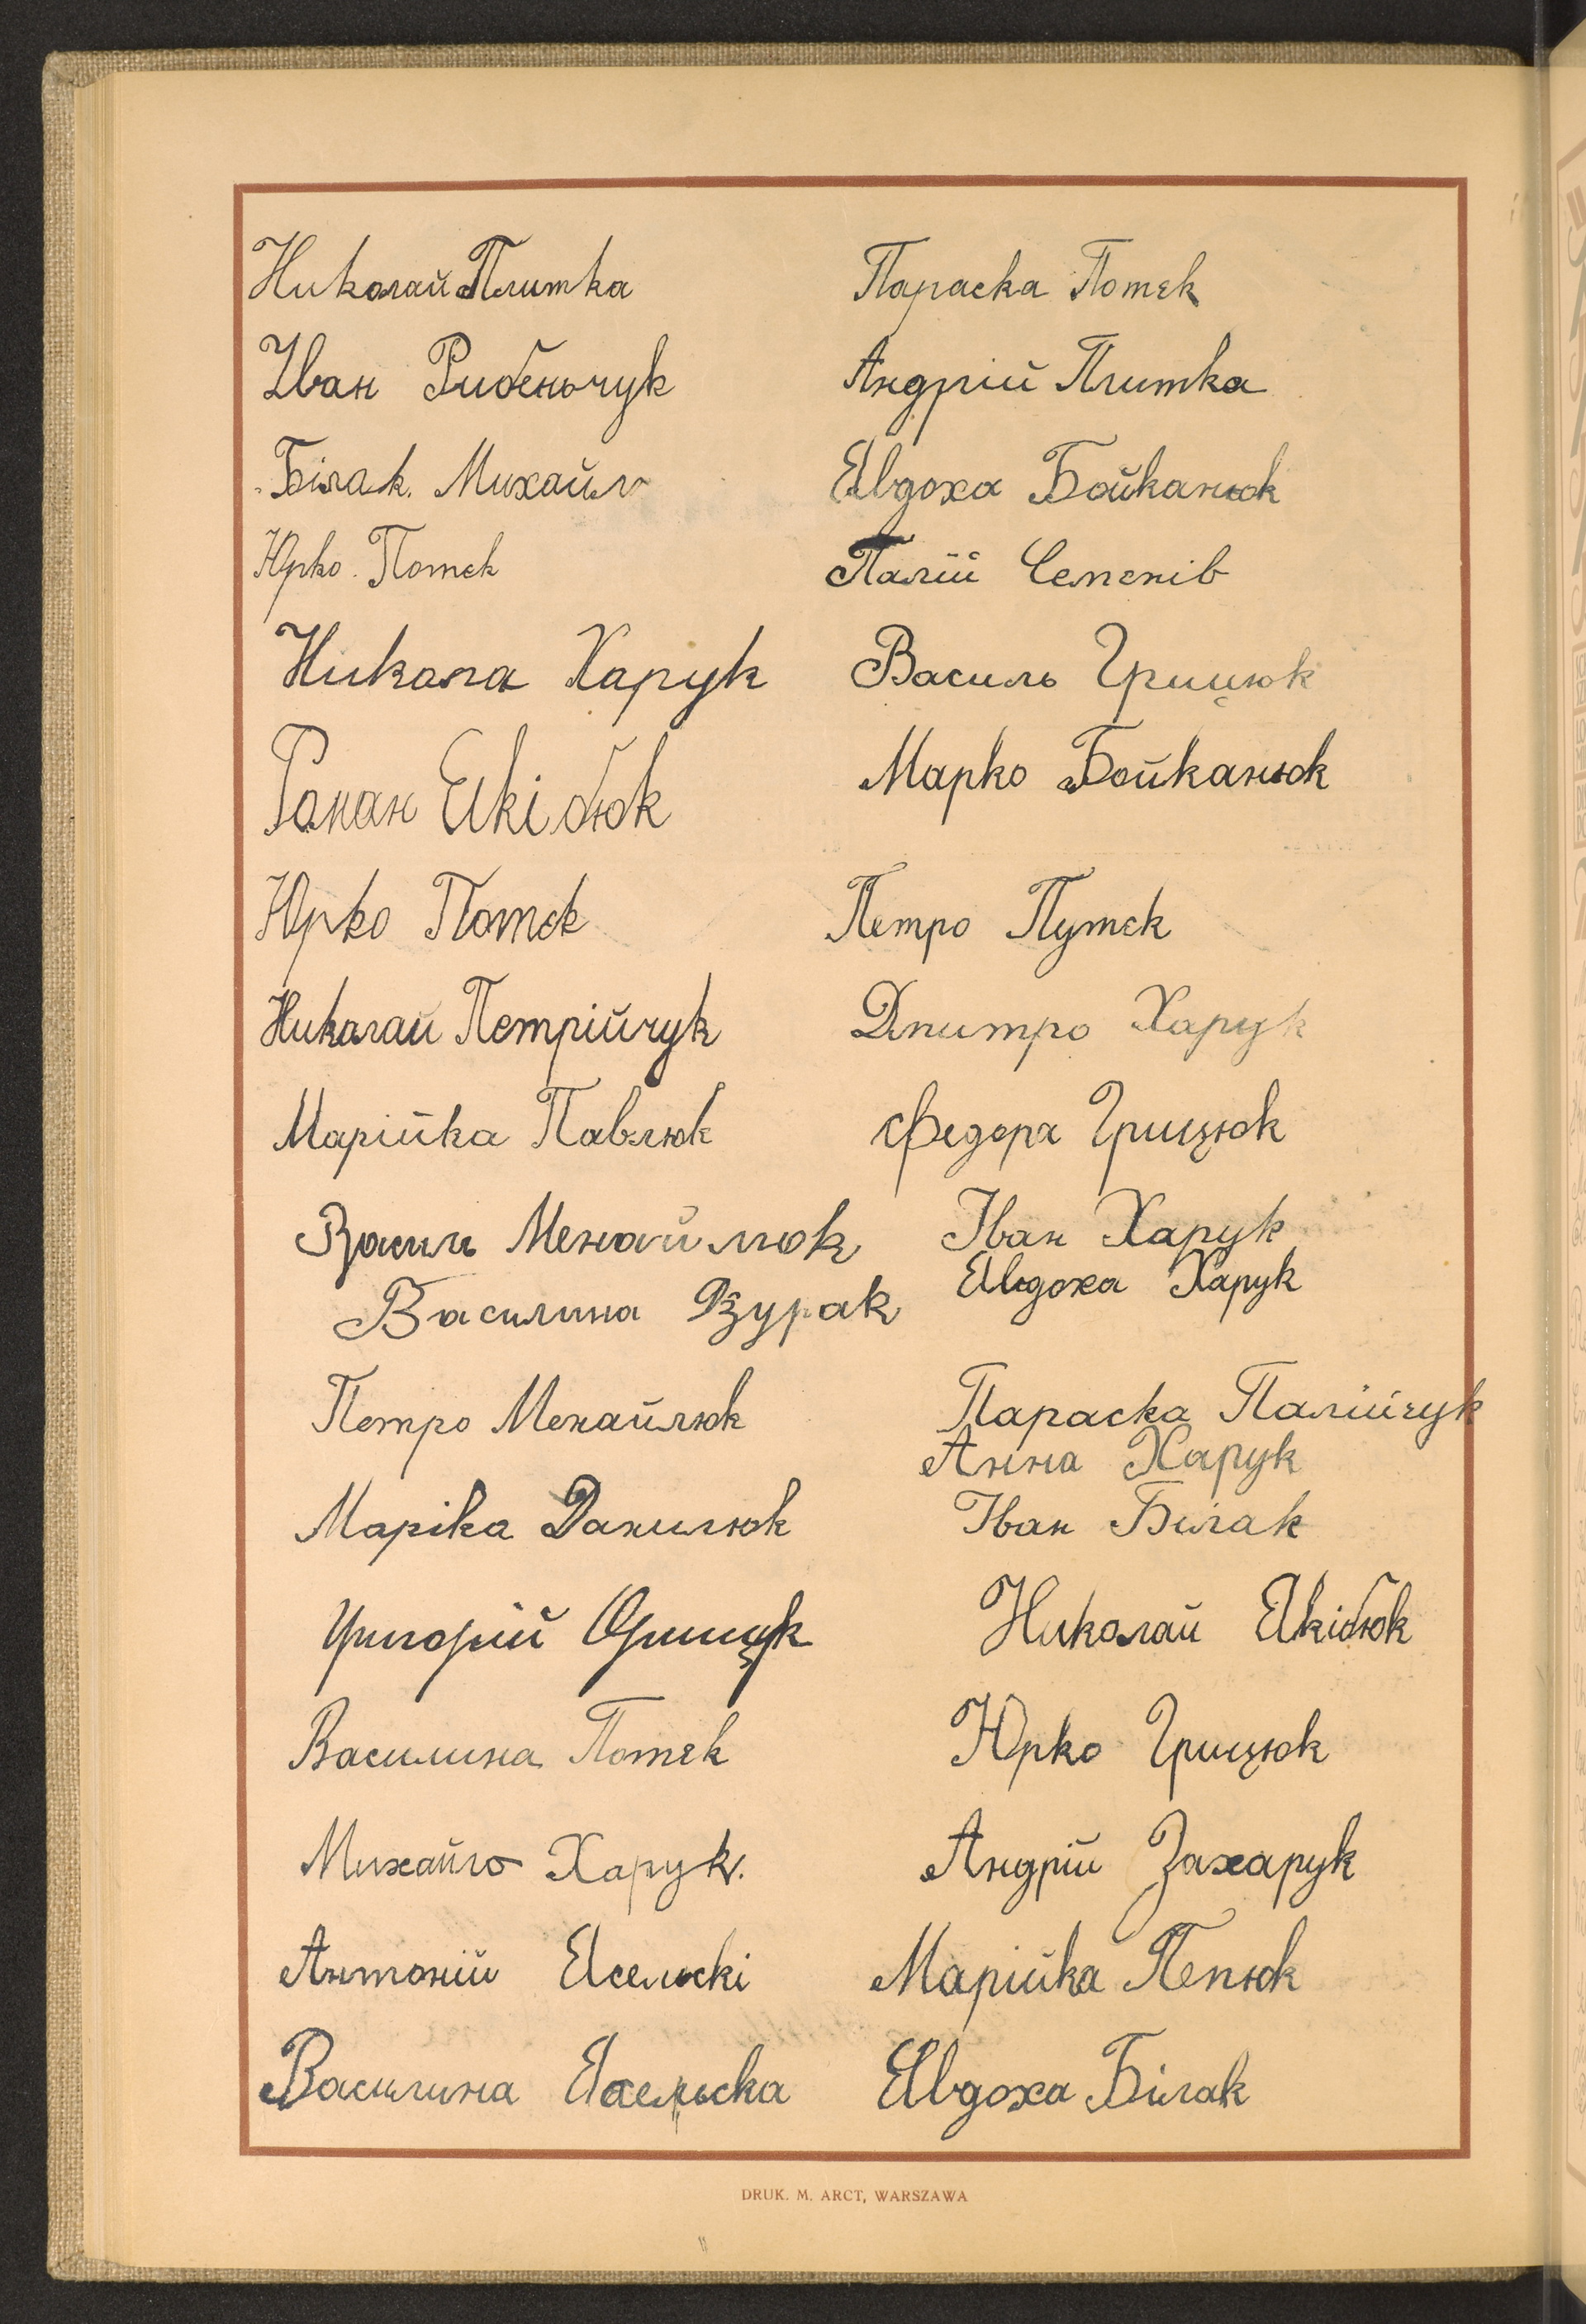 Николай Плитка
Іван Рибеньчук
Білак. Михайло
Юрко. Потєк
Никола Харук
Роман Якібюк
Юрко Потєк
Николай Петрійчук
Марійка Павлюк
Василь Менайлюк
Василина Дзурак
Петро Менайлюк
Маріка Данилюк
Григорій
Василина Потєк
Михайло Харук.
Антоній
Василина
Параска Потєк
Андрій Плитка
Євдоха Бойканюк
Палій Семенів
Василь Грицюк
Марко Бойканюк
Петро Путєк
Дмитро Харук
Федора Грицюк
Іван Харук
Євдоха Харук
Параска Палійчук
Анна Харук
Іван Білак
Николай Якібюк
Юрко Грицюк
Андрій Захарук
Марійка Пепюк
Євдоха Білак
DRUK. M. ARCT, WARSZAWA